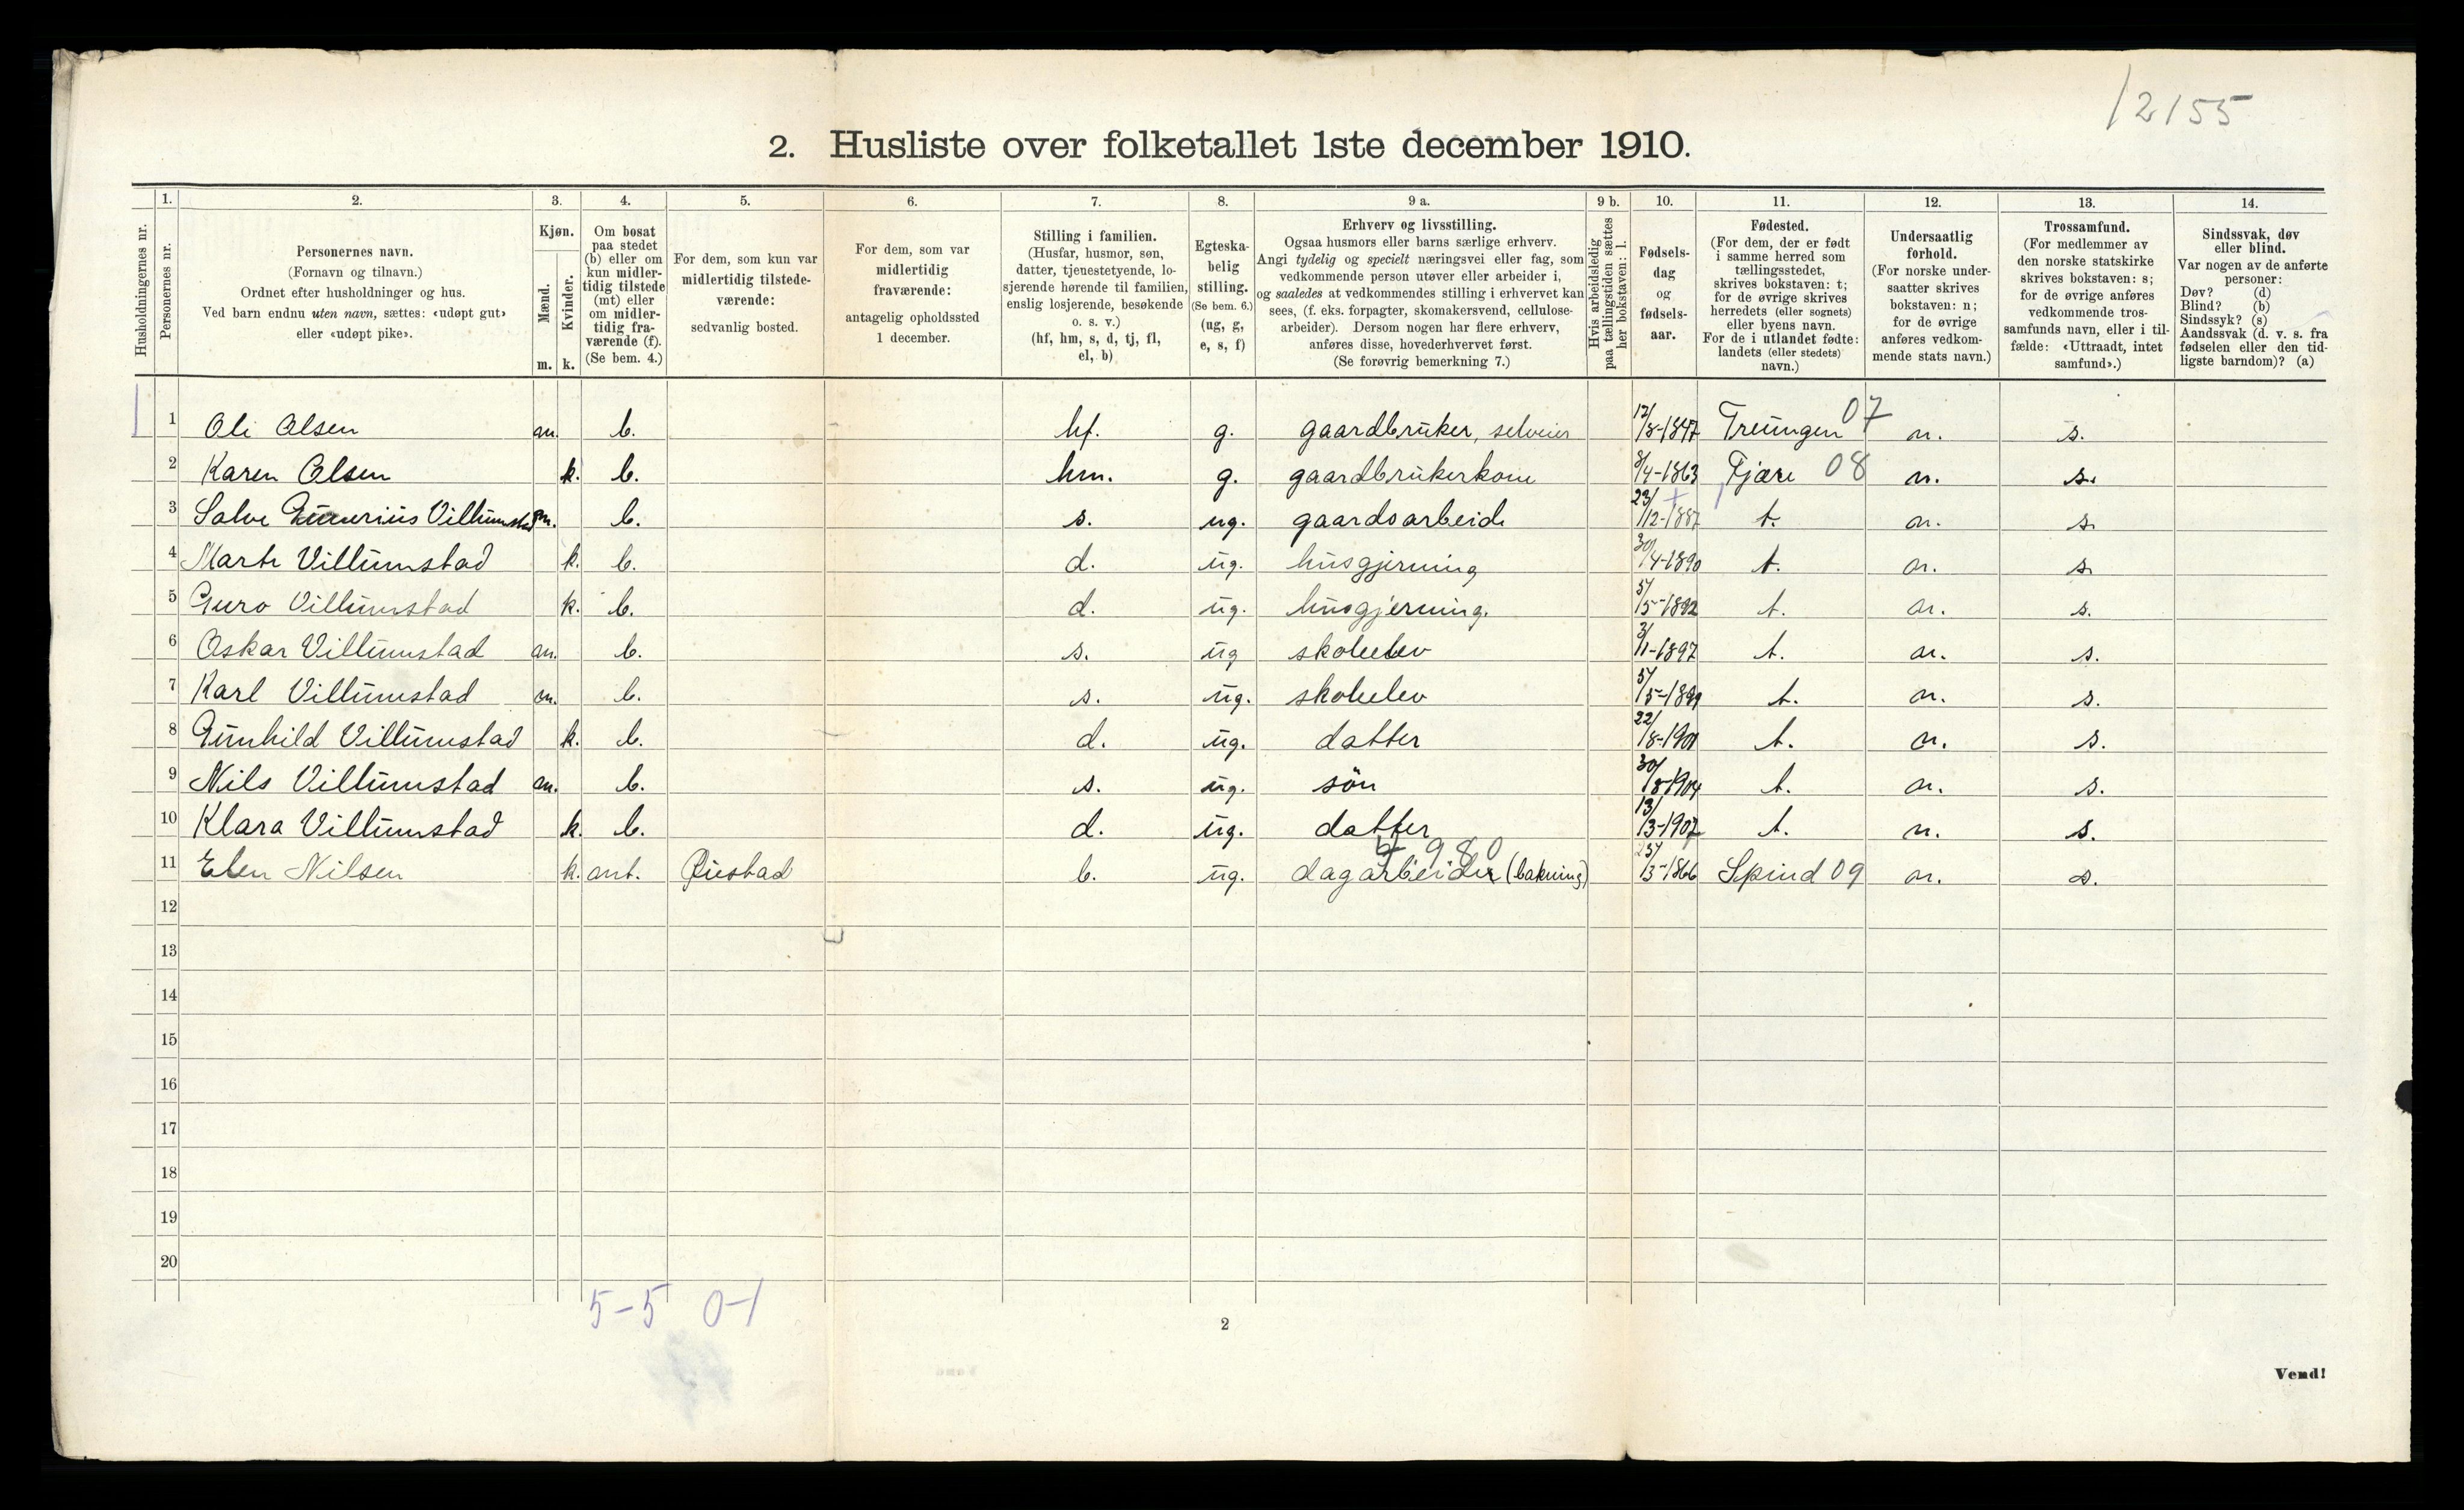 12155
2. Husliste over folketallet 1ste december 1910.
Husholdningernes nr.
1. Personernes nr.
2. Personernes navn.
(Fornavn og tilnavn.)
Ordnet efter husholdninger og hus.
Ved barn endnu uten navn, sættes: «udøpt gut»
eller «udøpt pike».
3. Kjøn.
Mænd. m.
Kvinder. k.
4. Om bosat
paa stedet
(b) eller om
kun midler-
tidig tilstede
(mt) eller
om midler-
tidig fra-
værende (f).
(Se bem. 4.)
5. For dem, som kun var
midlertidig tilstede-
værende:
sedvanlig bosted.
6. For dem, som var
midlertidig
fraværende:
antagelig opholdssted
1 december.
7. Stilling i familien.
(Husfar, husmor, søn,
datter, tjenestetyende, lo-
sjerende hørende til familien,
enslig losjerende, besøkende
o. s. v.)
(hf, hm, s, d, tj, fl,
el, b)
8. Egteska-
belig
stilling.
(Se bem. 6.)
(ug, g,
e, s, f)
9 a. Erhverv og livsstilling.
Ogsaa husmors eller barns særlige erhverv.
Angi tydelig og specielt næringsvei eller fag, som
vedkommende person utøver eller arbeider i,
og saaledes at vedkommendes stilling i erhvervet kan
sees, (f. eks. forpagter, skomakersvend, cellulose-
arbeider). Dersom nogen har flere erhverv,
anføres disse, hovederhvervet først.
(Se forøvrig bemerkning 7.)
9 b. Hvis arbeidsledig
paa tællingstiden sættes
her bokstaven: l.
10. Fødsels-
dag
og
fødsels-
aar.
11. Fødested.
(For dem, der er født
i samme herred som
tællingsstedet,
skrives bokstaven: t;
for de øvrige skrives
herredets (eller sognets)
eller byens navn.
For de i utlandet fødte:
landets (eller stedets)
navn.)
12. Undersaatlig
forhold.
(For norske under-
saatter skrives
bokstaven: n;
for de øvrige
anføres vedkom-
mende stats navn.)
13. Trossamfund.
(For medlemmer av
den norske statskirke
skrives bokstaven: s;
for de øvrige anføres
vedkommende tros-
samfunds navn, eller i til-
fælde: «Uttraadt, intet
samfund».)
14. Sindssvak, døv
eller blind.
Var nogen av de anførte
personer:
Døv? (d)
Blind? (b)
Sindssyk? (s)
Aandssvak (d. v. s. fra
fødselen eller den tid-
ligste barndom)? (a)
1 Oli Olsen m. b. hf. g. gaardbruker, selveier 12/8-1847 Treungen 07 n. s.
2 Karen Olsen k. b. hm. g. gaardbrukerkone 8/4-1863 Fjære 08 n. s.
3 Salve Villumstad m. b. s. ug. gaardsarbeide 23/12-1887 t. n. s.
4 Marte Villumstad k. b. d. ug. husgjerning 30/4-1890 t. n. s.
5 Guro Villumstad k. b. d. ug. husgjerning. 5/5-1892 t. n. s.
6 Oskar Villumstad m. b. s. ug skoleelev 3/11-1897 t. n. s.
7 Karl Villumstad m. b. s. ug. skoleelev 5/5-1899 t. n. s.
8 Gunhild Villumstad k. b. d. ug. datter 22/8-1901 t. n. s.
9 Nils Villumstad m. b. s. ug. sön 30/8-1904 t. n. s.
10 Klara Villumstad k. b. d. ug. datter 13/3-1907 t. n. s.
11 Elen Nilsen k. mt. b. ug. dagarbeider (bakning) 3-1866 Spind 09 n. s.
12
13
14
15
16
17
18
19
20
5-5 0-1
2
Vend!